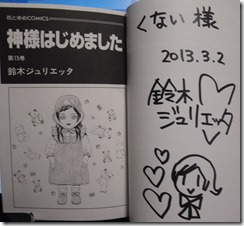 花とゆめCOMICS
神様はじめました
第15巻
鈴木ジュリエッタ
くない様
2013.3.2
鈴木
ジュリエッタ